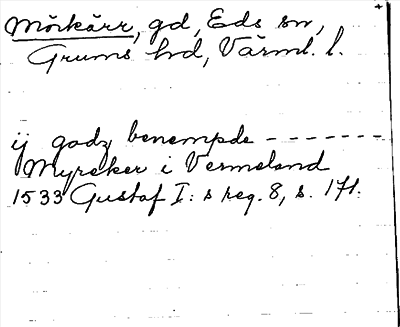 Mörkärr, gd, Eds sn,
Grums hd, Värml. l.
ij godz benempde - - - - - - -
Myreker i Vermeland
1533 Gustaf I:s reg. 8, s. 171.